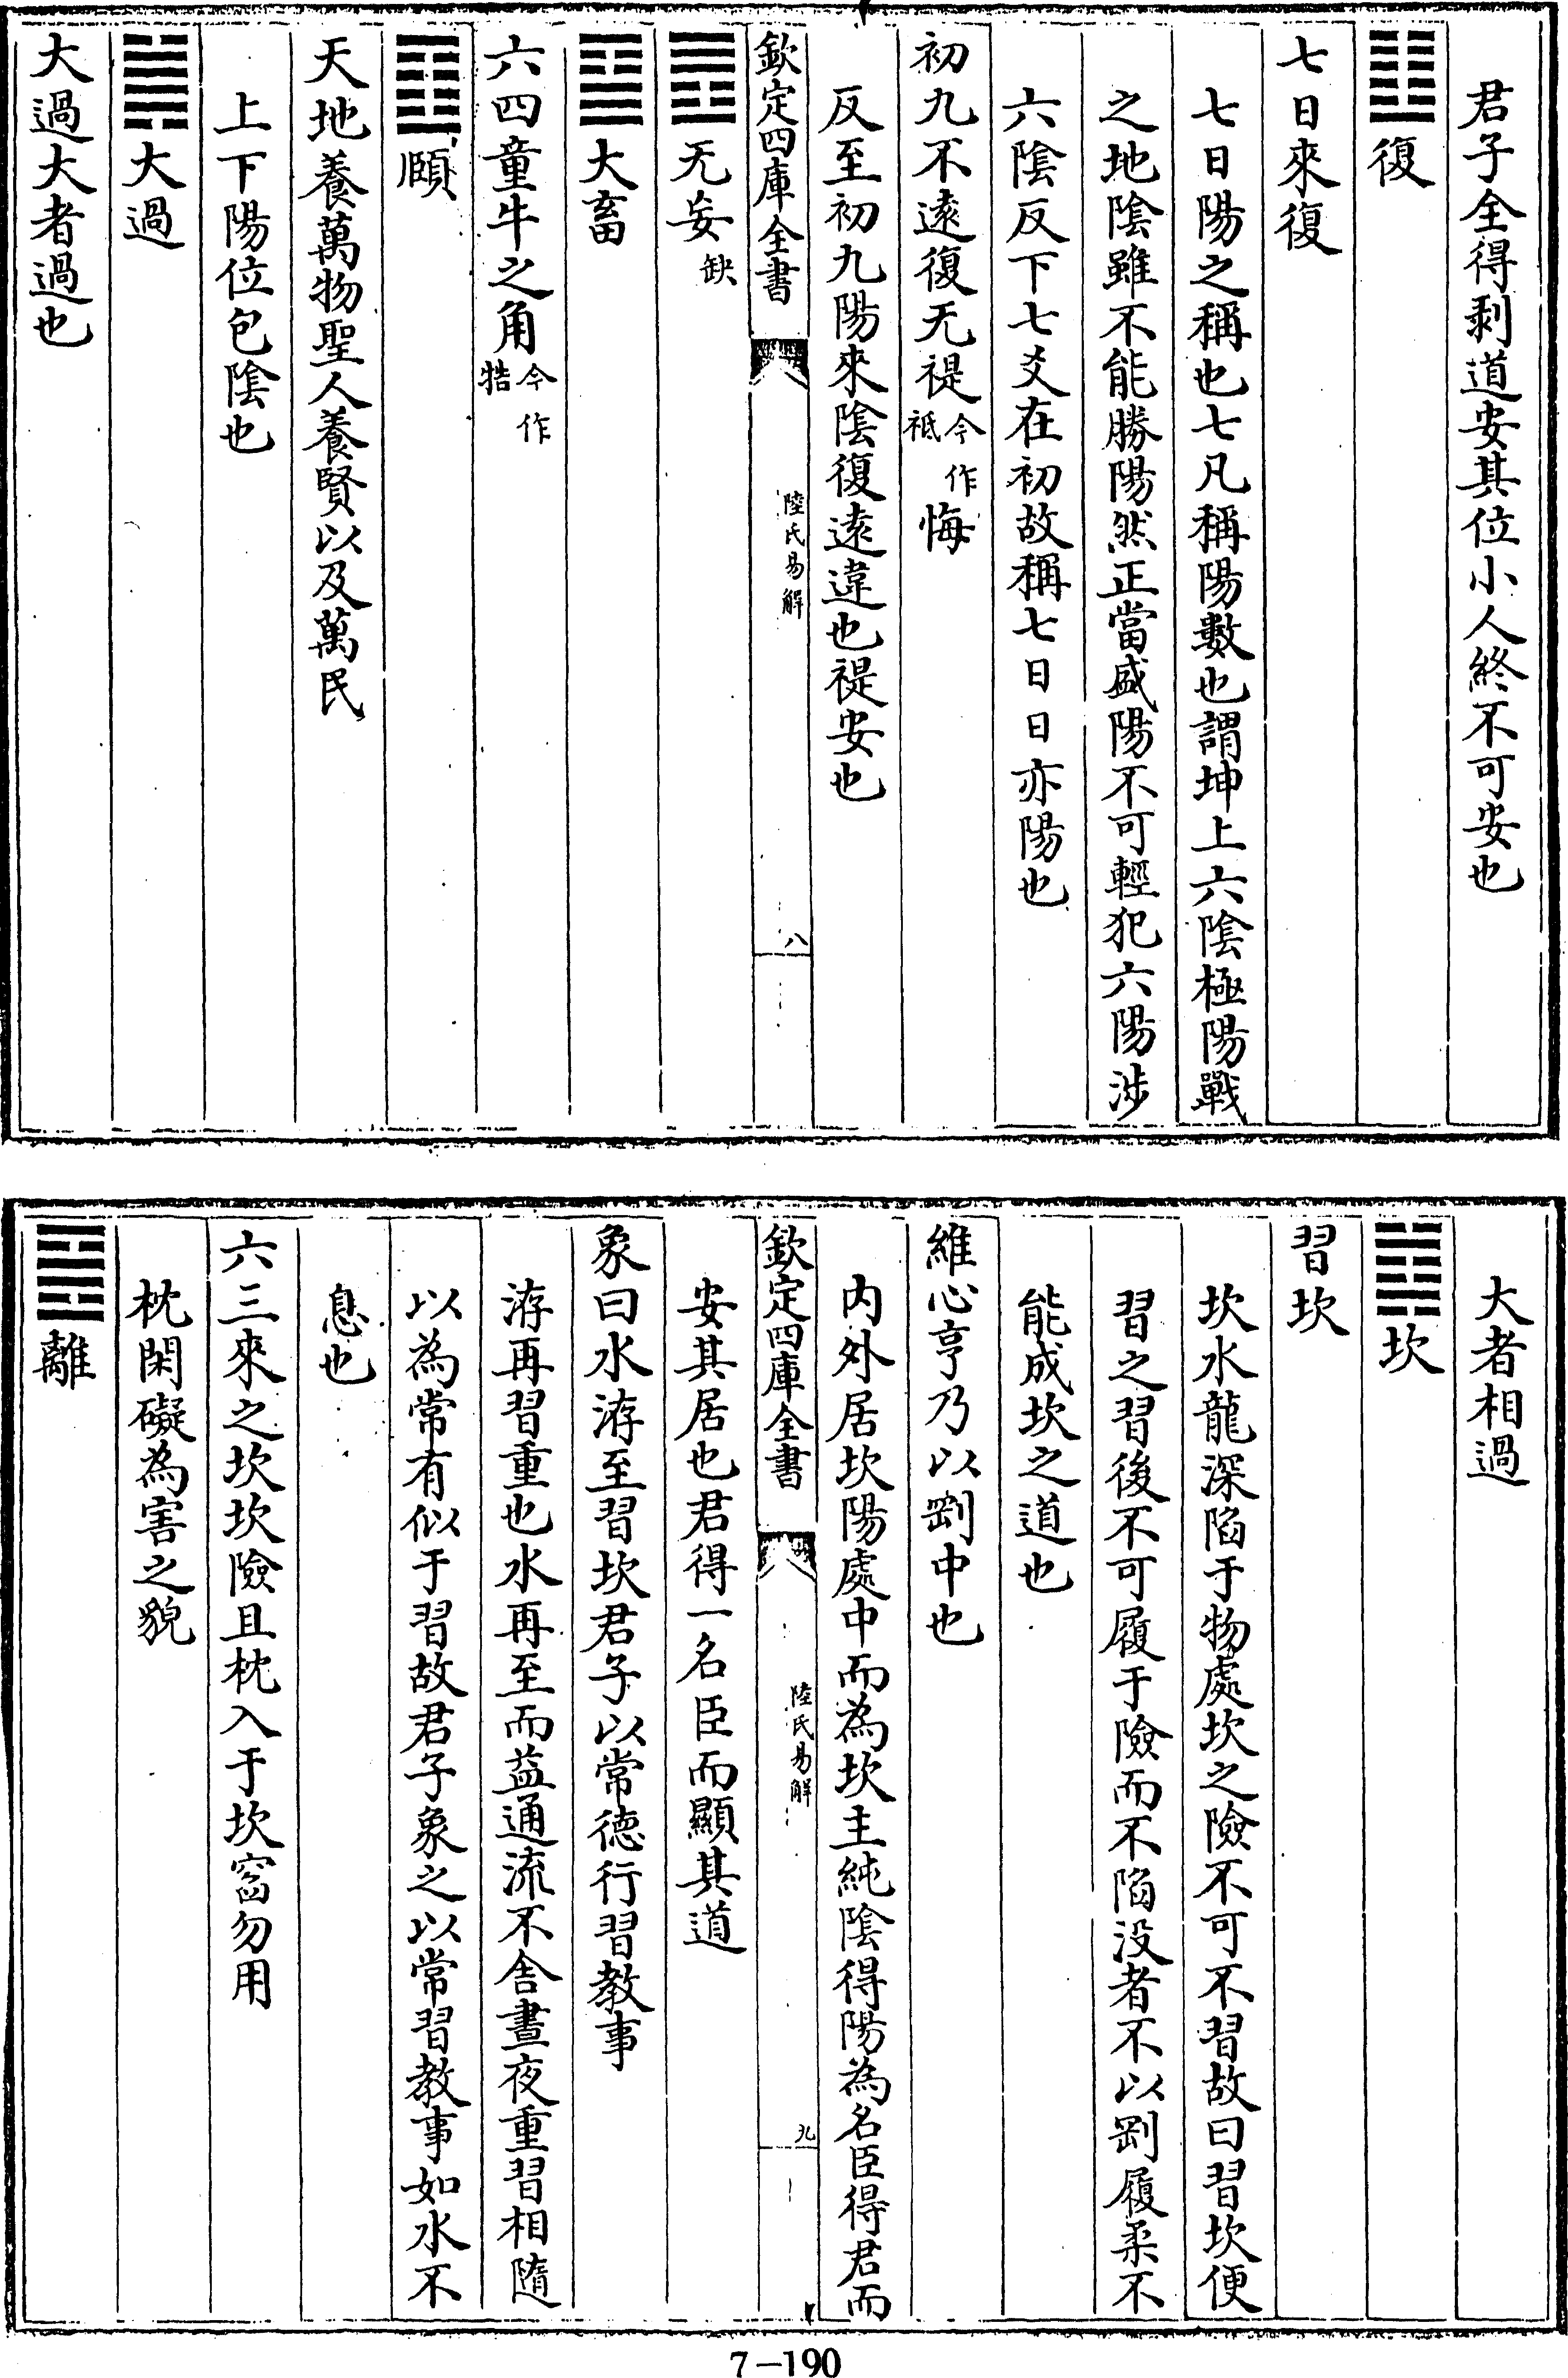 君子全得剥道安其位小人終不可安也
䷗復
七日來復
七日陽之稱也七凡稱陽數也謂坤上六陰極陽戰
之地陰雖不能勝陽然正當盛陽不可輕犯六陽涉
六陰反下七爻在初故稱七日日亦陽也
初九不逺復无禔今作祗悔
反至初九陽來陰復逺違也禔安也
欽定四庫全書
陸氏易解
八
䷘无妄缺
䷙大畜
六四童牛之角今作牿
䷚頤
天地養萬物聖人養賢以及萬民
上下陽位包陰也
䷛大過
大過大者過也
大者相過
䷜坎
習坎
坎水龍深陷于物處坎之險不可不習故曰習坎便
習之習後不可履于險而不陷没者不以剛履柔不
能成坎之道也
維心亨乃以剛中也
内外居坎陽處中而為坎主純陰得陽為名臣得君而
欽定四庫全書
陸氏易解
九
安其居也君得一名臣而顯其道
象曰水洊至習坎君子以常徳行習教事
洊再習重也水再至而益通流不舍晝夜重習相隨
以為常有似于習故君子象之以常習教事如水不
息也
六三來之坎坎險且枕入于坎窞勿用
枕閑礙為害之貌
䷝離
7-190